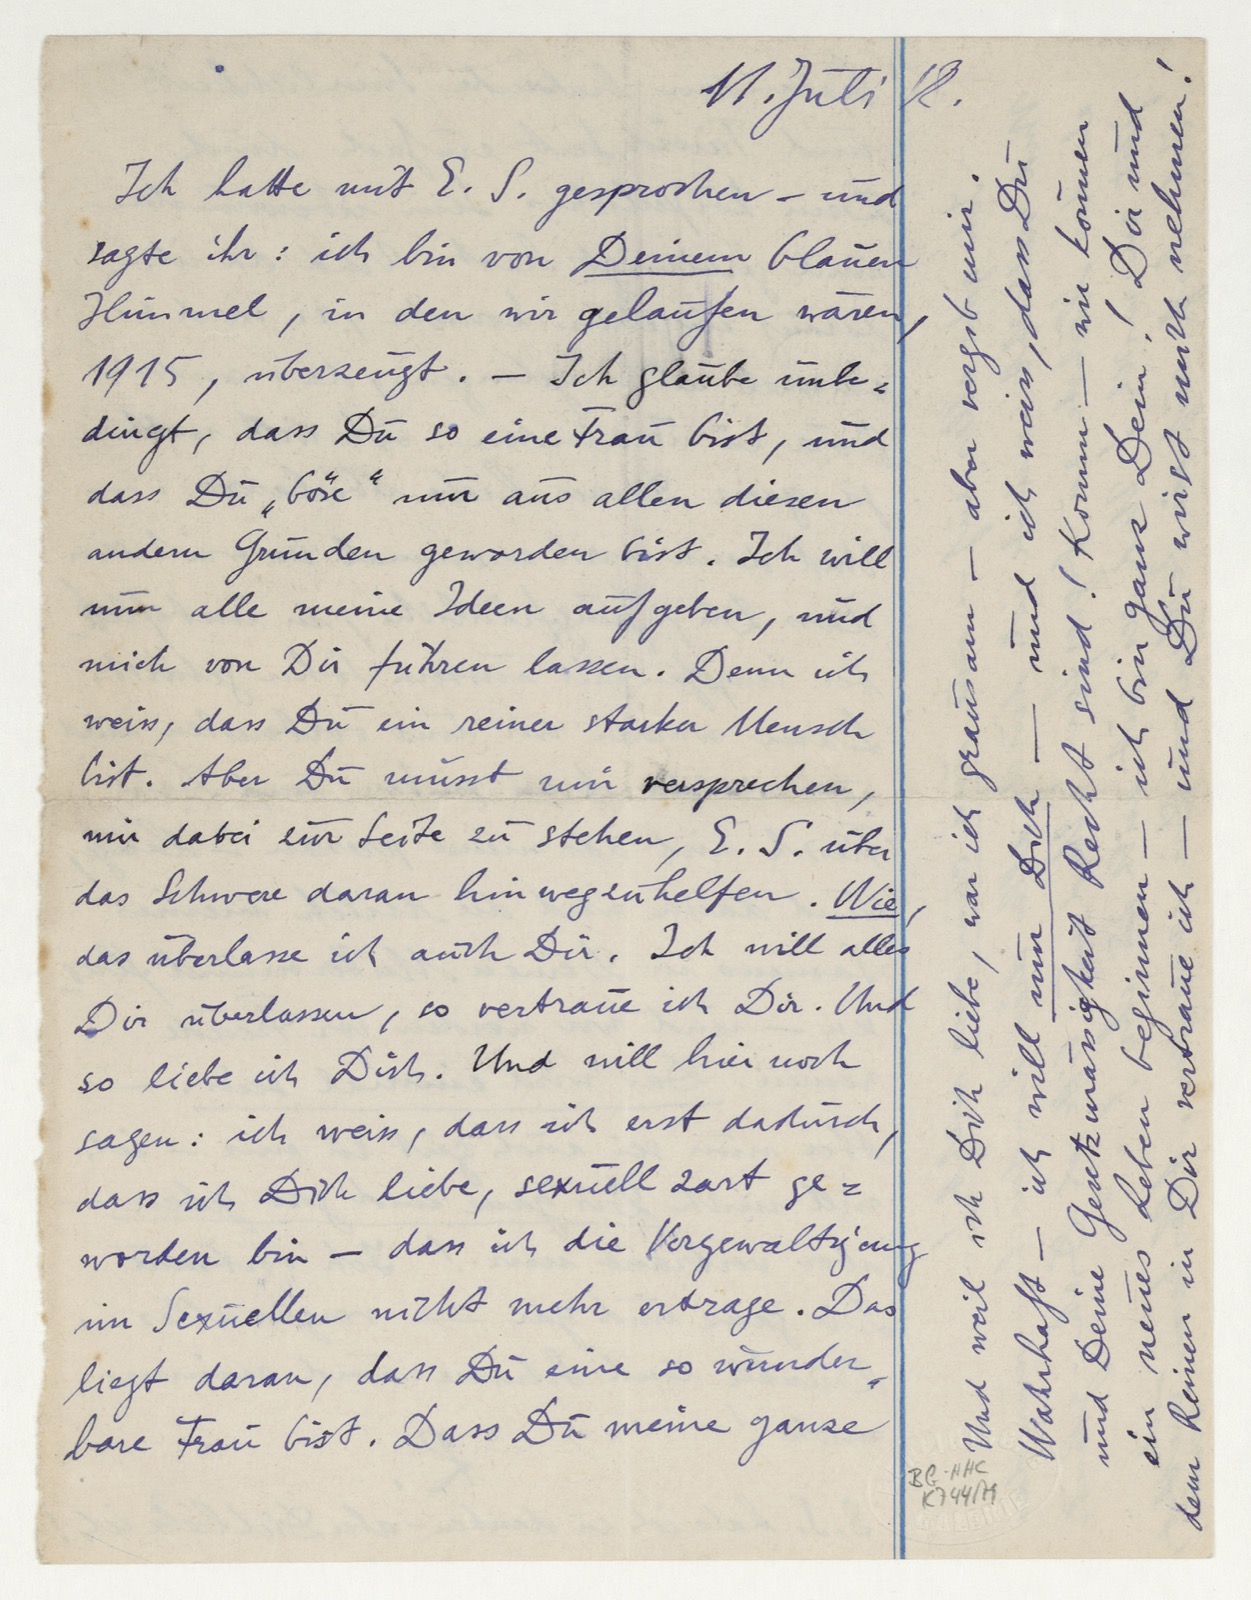 11. Juli 18.
Ich hatte mit E. S. gesprochen – und
sagte ihr: ich bin von Deinem blauen
Himmel, in den wir gelaufen wären,
1915, überzeugt. – Ich glaube unbe=
dingt, dass Du so eine Frau bist, und
dass Du „böse“ nur aus allen diesen
andern Gründen geworden bist. Ich will
nun alle meine Ideen aufgeben, und
mich von Dir führen lassen. Denn ich
weiss, dass Du ein reiner starker Mensch
bist. Aber Du musst mir versprechen,
mir dabei zur Seite zu stehen, E. S. über
das Schwere daran hinwegzuhelfen. Wie,
das überlasse ich auch Dir. Ich will alles
Dir überlassen, so vertraue ich Dir. Und
so liebe ich Dich. Und will hier noch
sagen: ich weiss, dass ich erst dadurch,
dass ich Dich liebe, sexuell zart ge=
worden bin – dass ich die Vergewaltigung
im Sexuellen nicht mehr ertrage. Das
liegt daran, dass Du eine so wunder=
bare Frau bist. Dass Du meine ganze
Und weil ich Dich liebe, war ich grausam – aber vergib mir.
Wahrhaft – ich will nur Dich – und ich weiss, dass Du
und Deine Gesetzmässigkeit Recht sind! Komm – wir können
ein neues Leben beginnen – ich bin ganz Dein! Dir und
dem Reinen in Dir vertraue ich – und Du wirst mich nehmen!
BG-HHC
K744/79